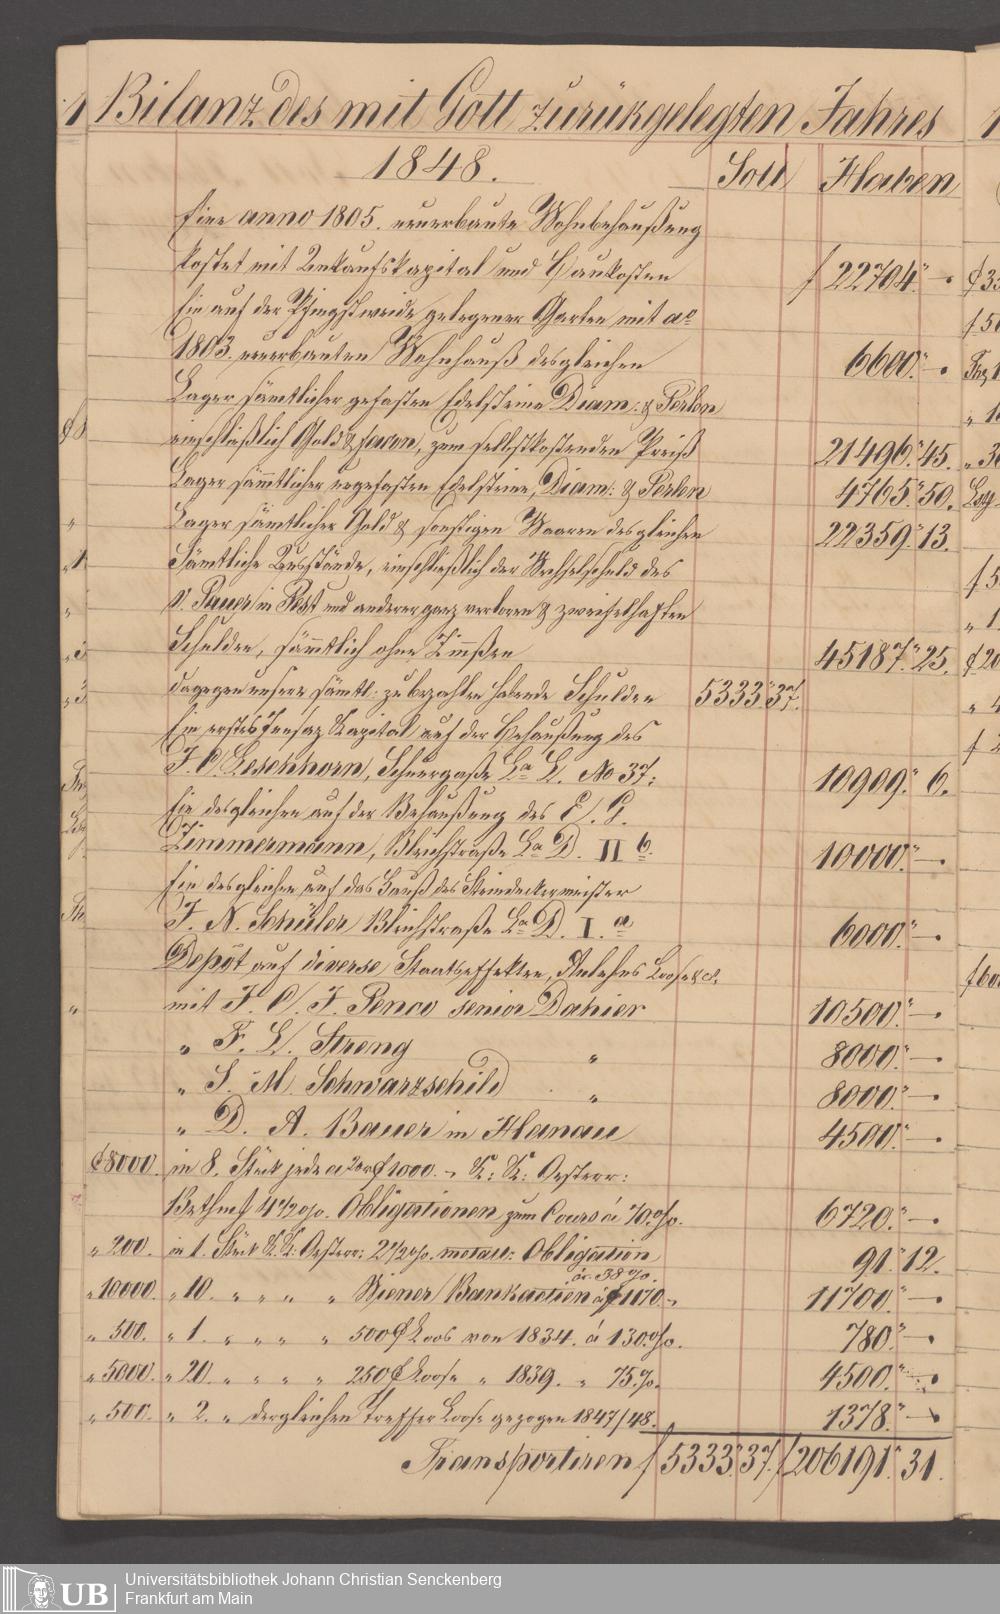 Bilanz des mit Gott zurükgelegten Jahres
1848. Soll Haben
Eine anno 1805. neuerbaute Wohnbehaußung
kostet mit Ankaufskapital und Baukosten f 22704."—.
Ein auf der Pfingstweide gelegener Garten mit ao
1803. neuerbauten Wohnhauß desgleichen 6600."—.
Lager sämtlicher gefasten Edelsteine Diam: & Perlen
einschließlich Gold & facon, zum selbstkostenden Preiß 21496."45.
Lager sämtlicher ungefasten Edelsteine, Diam: & Perlen 4765."50.
Lager sämtlicher Gold & sonstigen Waaren desgleichen 22359."13.
Sämtliche Ausstände, einschließlich der Wechselschuld des
v. Pauer in Pest und anderer ganz verloren & zweifelhaften
Schulden, sämtlich ohne Zinnßen 45187."25.
dagegen unsere sämtl: zu bezahlen habende Schulden 5333."37.
Ein erstes Insaz Kapital auf der Behaußung des
J. C. Geschhorn, Schnurgaße La L. No 37: 10909."6.
Ein desgleichen auf der Behaußung des C. P.
Zimmermann, Bleichstraße La D. II b. 10000."—.
Ein desgleichen auf das Hauß des Steindeckermeister
J. N. Schüler Bleichstraße La D. I. a 6000."—.
Depôt auf diverse Staatseffekten, Anlehns Loose &c.
mit J. C. J. Penco senior Dahier 10500."—.
" F. L. Streng " 8000."—.
" S. M. Schwarzschild " 8000."—.
" D. A. Bauer in Hanau 4500."—.
f 8000. in 8. Stück jede a f 1000. K: K: Oesterr:
Bethm 4 1/2 %. Obligationen zum Cours á 70 %. 6720."—.
" 200. in 1. Stück K. K: Oesterr: 2 1/2 %. metall: Obligation
á 38 %. 91."12.
" 10000. " 10. " " " " Wiener Bankactien á f 1170. 11700."—.
" 500. " 1. " " " " 500 f Loos von 1834. á 130 %. 780."—.
" 5000. " 20. " " " " 250 f Loose " 1839. " 75 %. 4500."—.
" 500. " 2. " dergleichen Treffer Loose gezogen 1847/48. 1378."—.
Transportiren f 5333."37. f 206191."31.
UB
Universitätsbibliothek Johann Christian Senckenberg
Frankfurt am Main